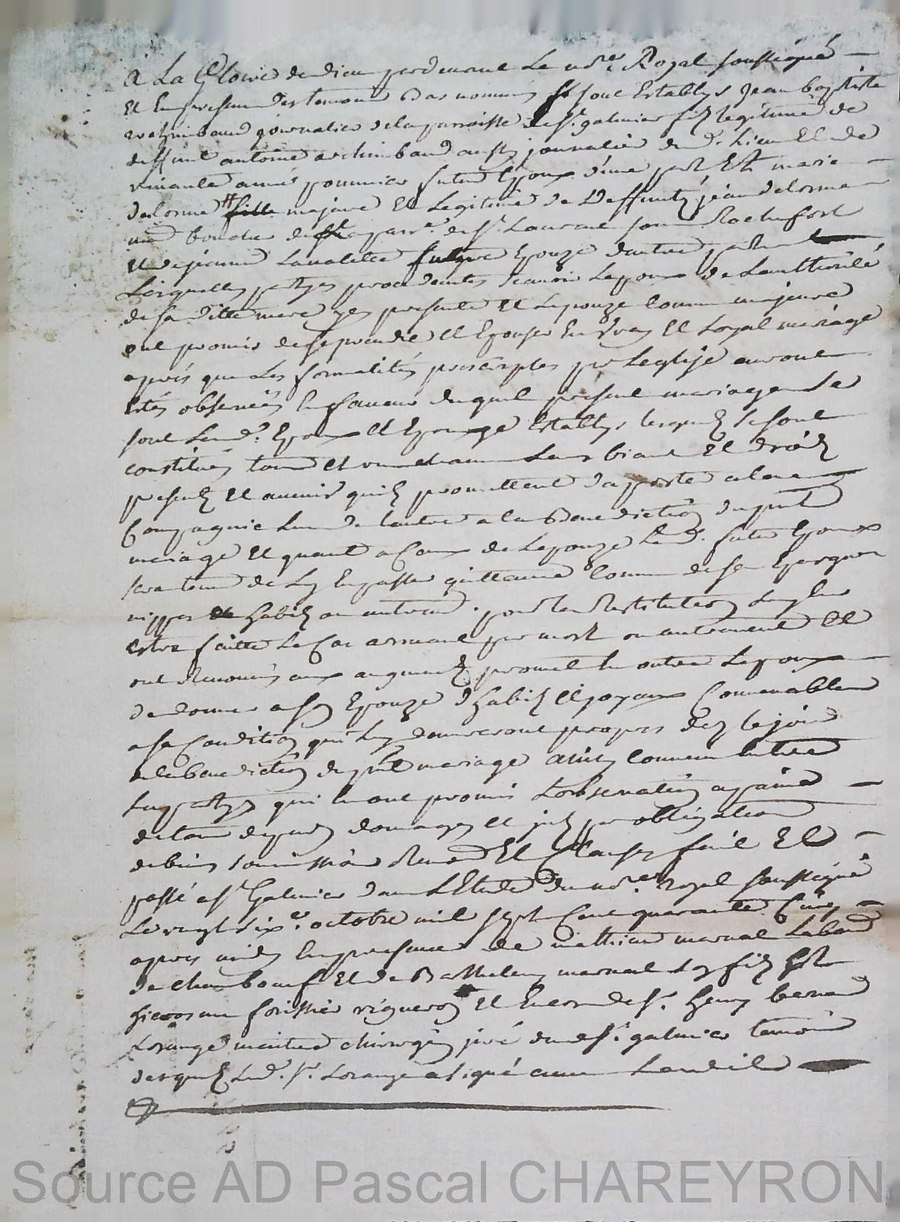 A La Gloire de dieu pardevant Le no.re Royal soussigné
Et En presence des temoins bas nommés se sont Establys Jean baptiste
archimbaud journalier de la parroisse de St. galmier fils legitime de
deffunt antoine archimbaud aussy journalier du d. Lieu Et de
vivante pommier futur Epoux d'une part Et marie
delorme fille majeure Et Legitime de Deffunts jean delorme
boucher de la parr.e de St. Laurent sous Rochefort
Et de jeanne Lavalette future Epouze d'autre part
Lesquelles partyes procedantes sçavoir Lepoux de Lauthorité
de sa ditte mere presente Et Lepouze comme majeure
ont promis de se prendre Et Epouser En vray Et Loyal mariage
apres que Les formalités prescriptes par Leglise auront
Estés observées En faveur duquel present mariage se
sont Lesd. Epoux Et Epouze Establys lesquels se sont
constitués tous Et un chacun Leurs biens Et droits
presents Et avenir quils promettent d'apporter a leur
Compagnie Lun de Lautre a la Benediction du pnt
mariage Et quant a Ceux de Lepouze Led. futur Epoux
sera tenu de Luy En passer quittance comme de ses Epargnes
nippes Et habits ou autres pour La Restitution Luy En
estre faitte Le Cas arrivant par mort ou autrement Et
ont Renoncés aux augments promet En outre Lepoux
de donner a son Epouze d'habits Et joyaux Convenables
a sa Condition qui Luy demeureront propres dez le jour
de la benediction du pnt mariage ainsy Convenu Entre
Les partyes qui En ont promis Lobservation a peine
de tous depens domages Et jnts par obligation
de biens soumissions Renon.s Et Clauses fait Et
passé a St. Galmier dans L'Etude du no.re Royal soussigné
Le vingt six.e octobre mil sept Cent quarante Cinq
apres midy En presence de mathieu marnat Lab
de chambœuf Et de Barthelemy marnat son fils Et
forissier vigneron Et Encore de Sr. henry bernard
Lorange maitre chirurgien juré dud. St. galmier temoins
desquels Led. Sr. Lorange a signé avec
Source AD Pascal CHAREYRON